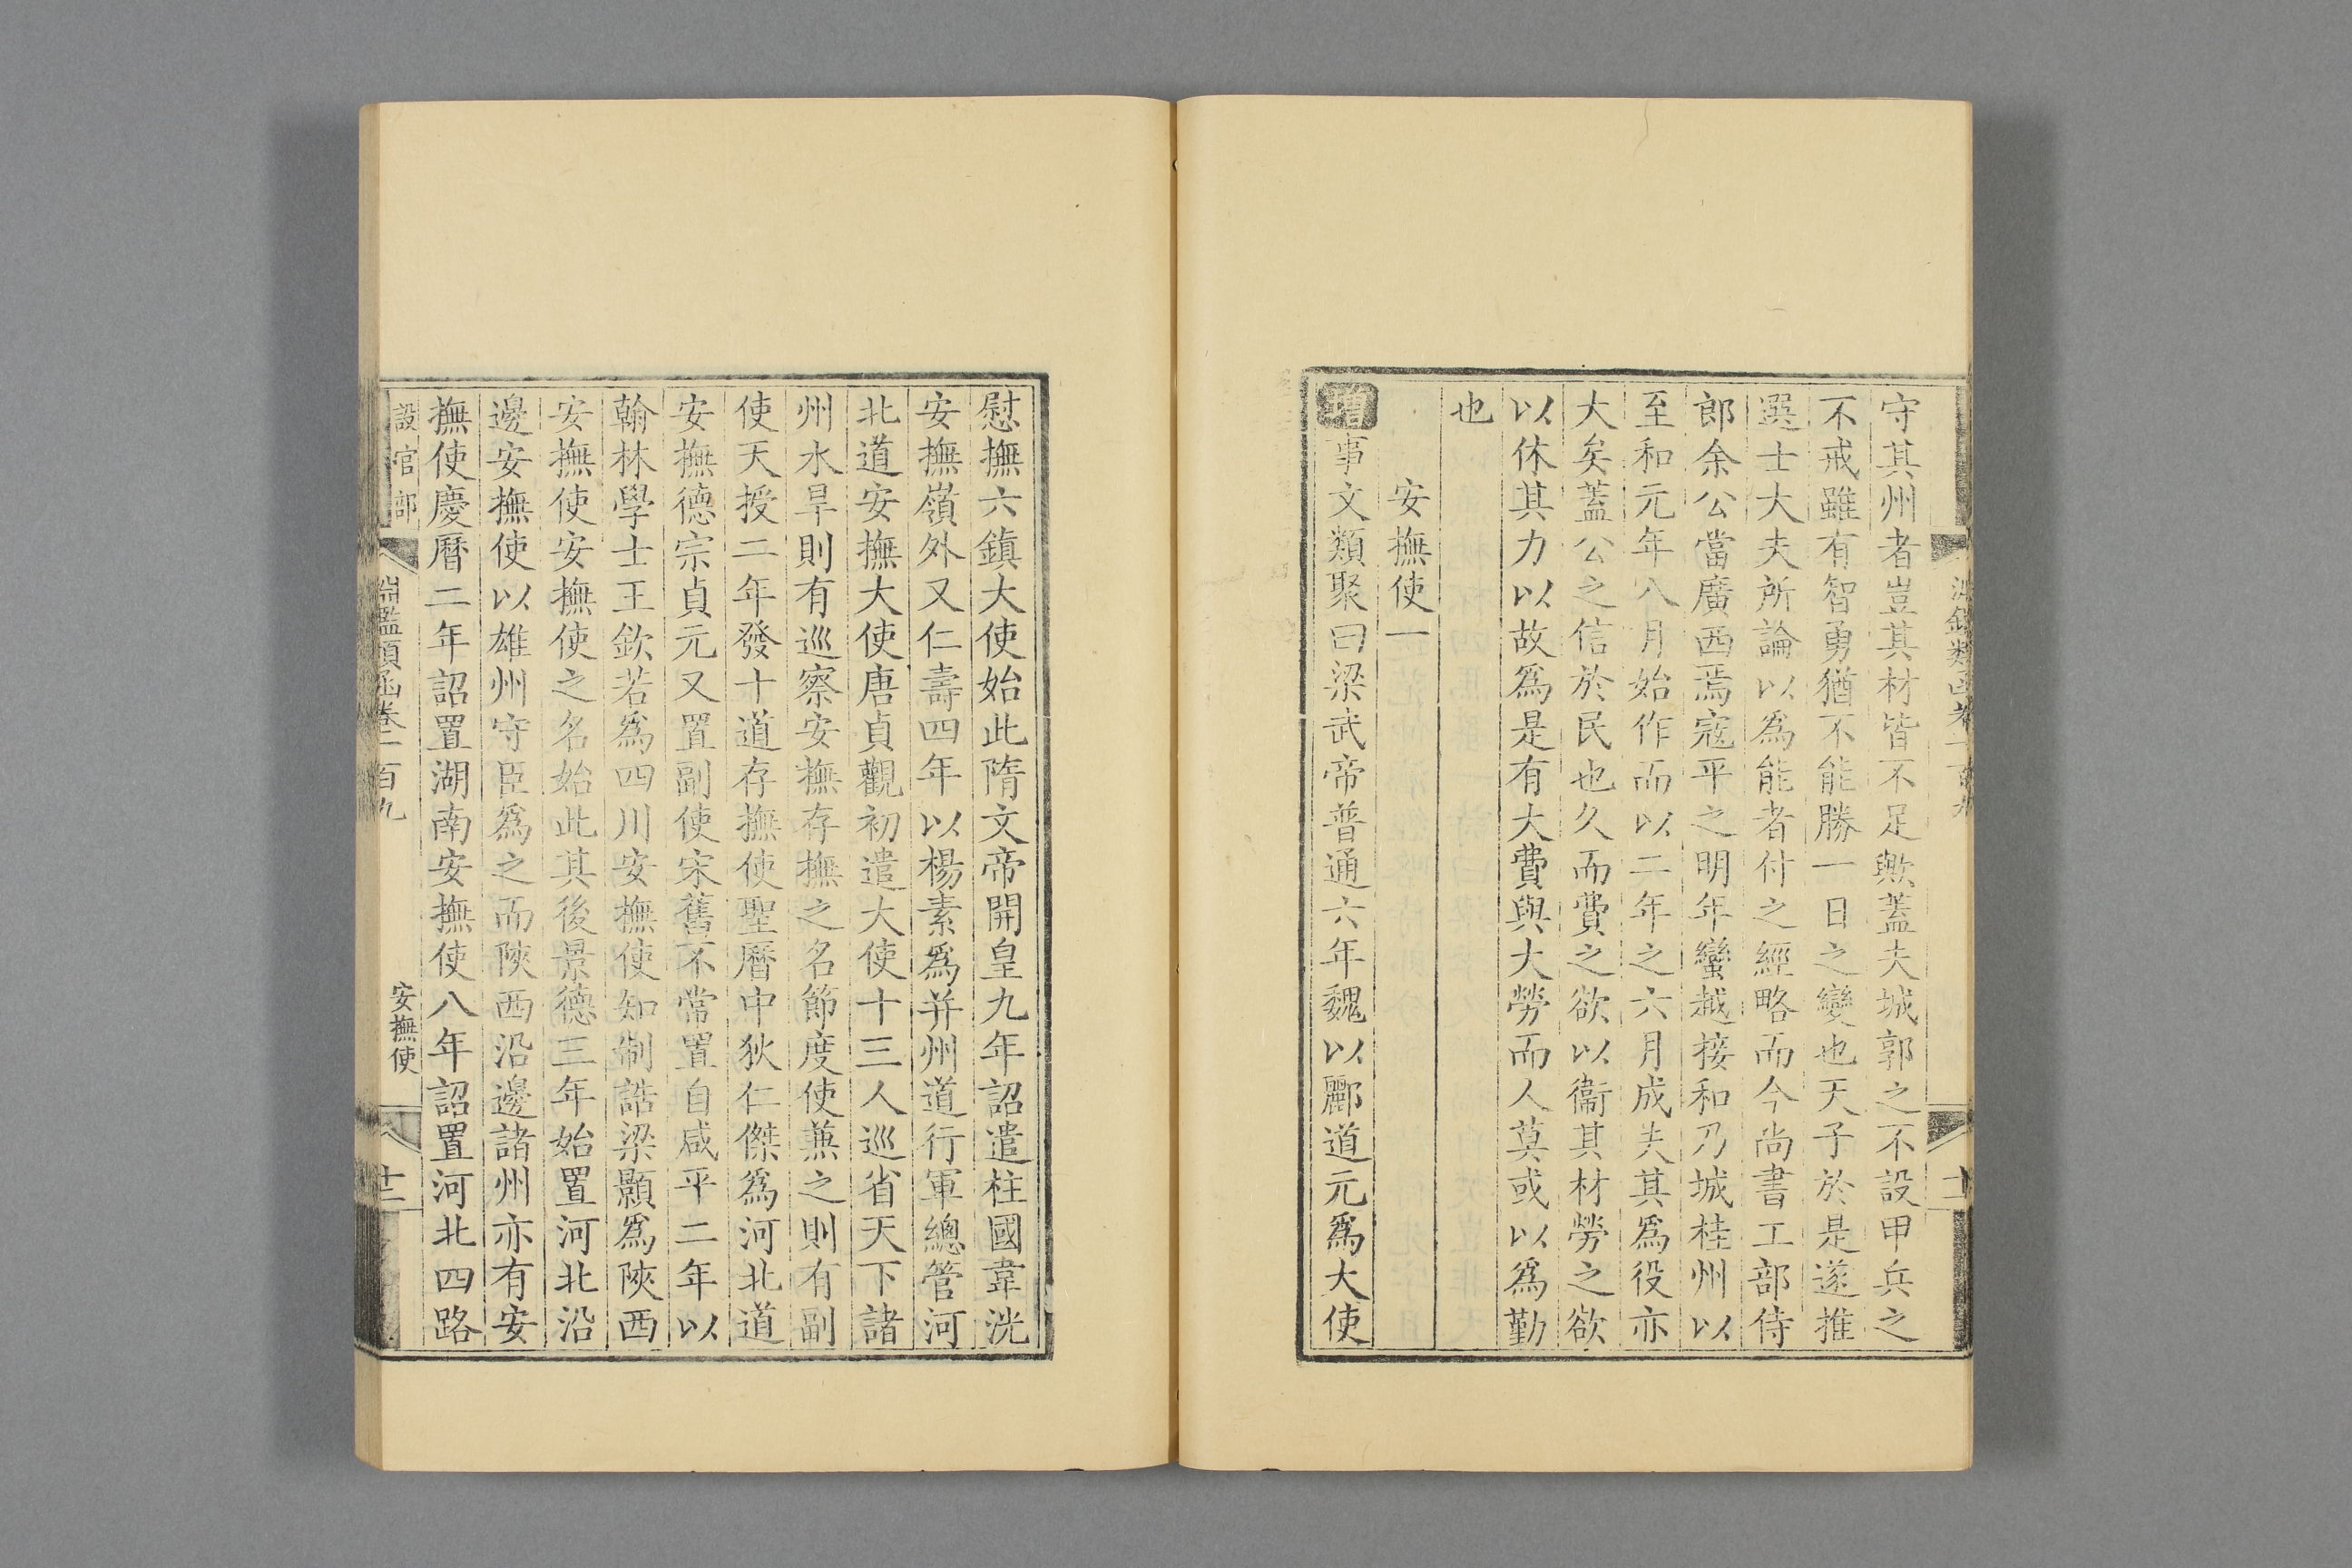 守其州者豈其材皆不足歟蓋夫城郭之不設甲兵之
不戒雖有智勇猶不能勝一日之變也天子於是遂推
選士大夫所論以爲能者付之經略而今尚書工部侍
郎余公當廣西焉寇平之明年蠻越接和乃城桂州以
至和元年八月始作而以二年之六月成夫其爲役亦
大矣蓋公之信於民也久而費之欲以衞其材勞之欲
以休其力以故爲是有大費與大勞而人莫或以爲勤
也
安撫使一
增事文類聚曰梁武帝普通六年魏以酈道元爲大使
慰撫六鎮大使始此隋文帝開皇九年詔遣柱國韋洸
安撫嶺外又仁壽四年以楊素爲并州道行軍總管河
北道安撫大使唐貞觀初遣大使十三人巡省天下諸
州水旱則有巡察安撫存撫之名節度使兼之則有副
使天授二年發十道存撫使聖曆中狄仁傑爲河北道
安撫德宗貞元又置副使宋舊不常置自咸平二年以
翰林學士王欽若爲四川安撫使知制誥梁顥爲陝西
安撫使安撫使之名始此其後景德三年始置河北沿
邊安撫使以雄州守臣爲之而陝西沿邊諸州亦有安
撫使慶曆二年詔置湖南安撫使八年詔置河北四路
設官部
淵鑑類函卷一百九
安撫使
十二